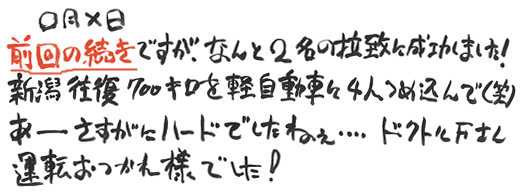 ○月×日
前回の続きですが、なんと2名の拉致に成功しました!
新潟往復700キロを軽自動車に4人つめ込んで(笑)
あーさすがにハードでしたねぇ‥‥ ドクトル万さん
運転おつかれ様でした!